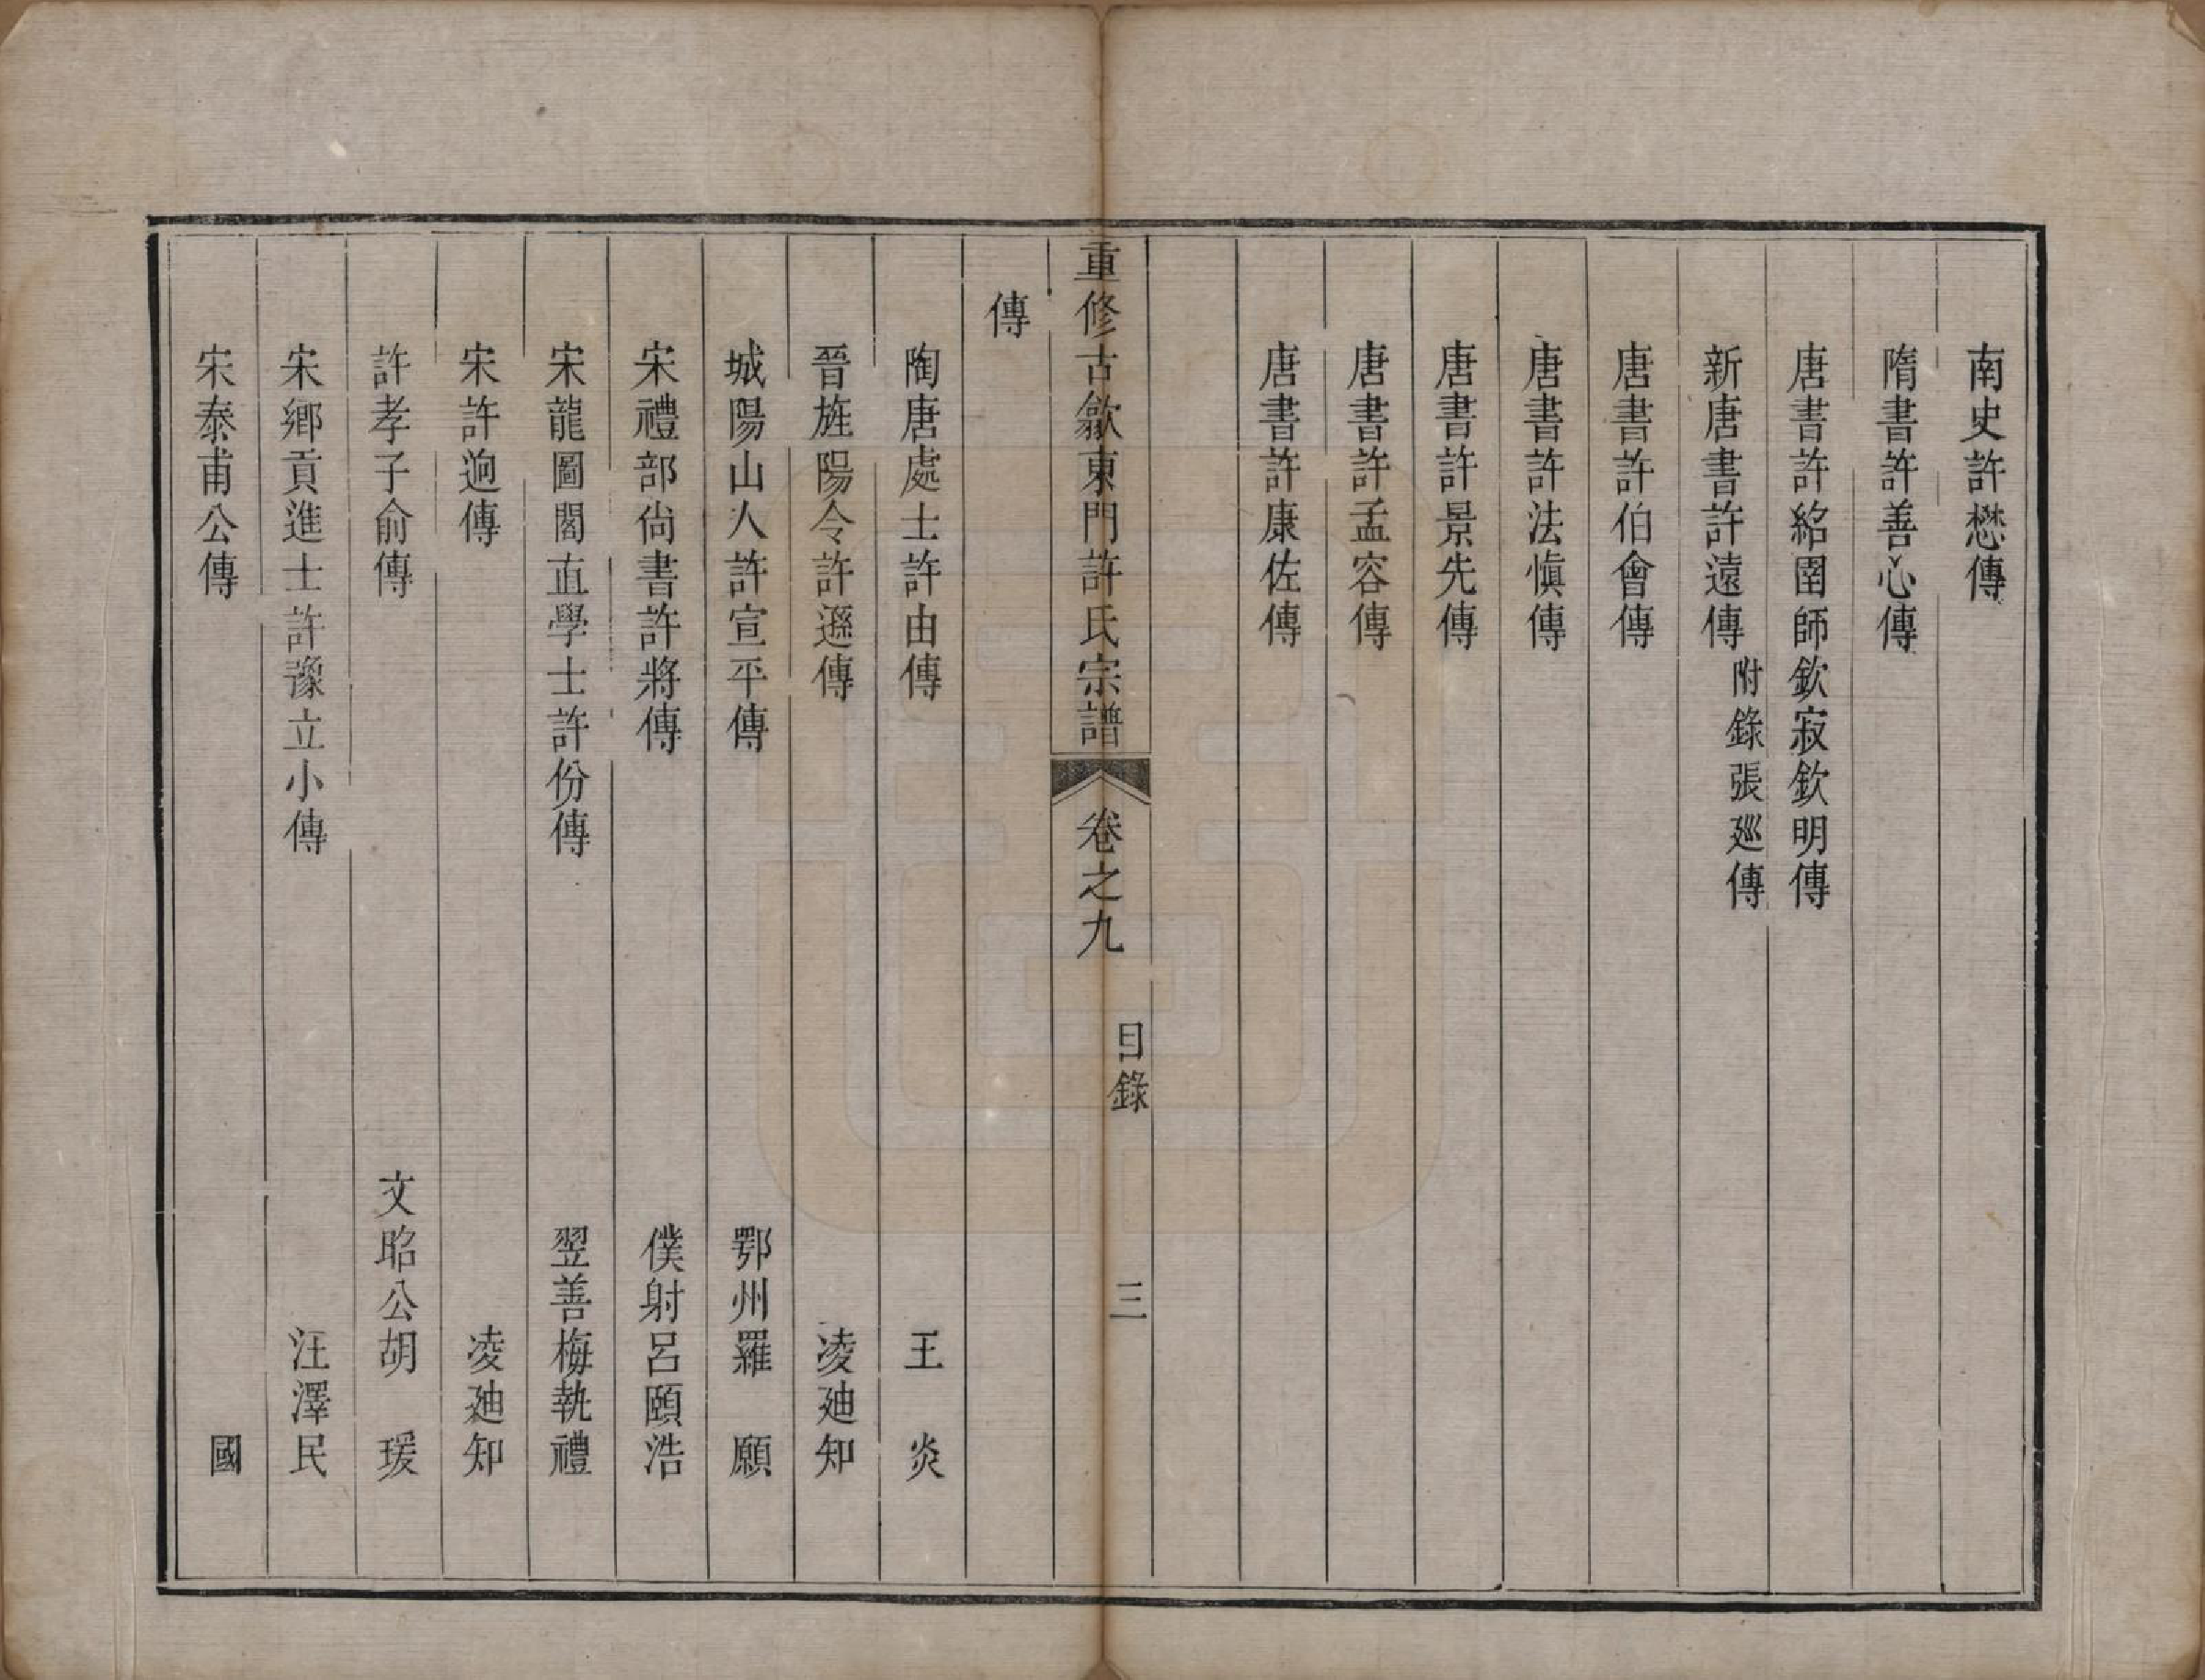 南史許懋傳
隋書許善心傳
唐書許紹圉師欽寂欽明傳
新唐書許遠傳附錄張巡傳
唐書許伯會傳
唐書許法愼傳
唐書許景先傳
唐書許孟容傳
唐書許康佐傳
重修古歙東門許氏宗譜 卷之九 目錄 三
傳
陶唐處士許由傳 王炎
晉旌陽令許遜傳 凌廸知
城陽山人許宣平傳 鄂州羅願
宋禮部尙書許將傳 僕射呂頤浩
宋龍圖閣直學士許份傳 翌善梅執禮
宋許逈傳 凌廸知
許孝子俞傳 文昭公胡瑗
宋鄉貢進士許豫立小傳 汪澤民
宋泰甫公傳 國